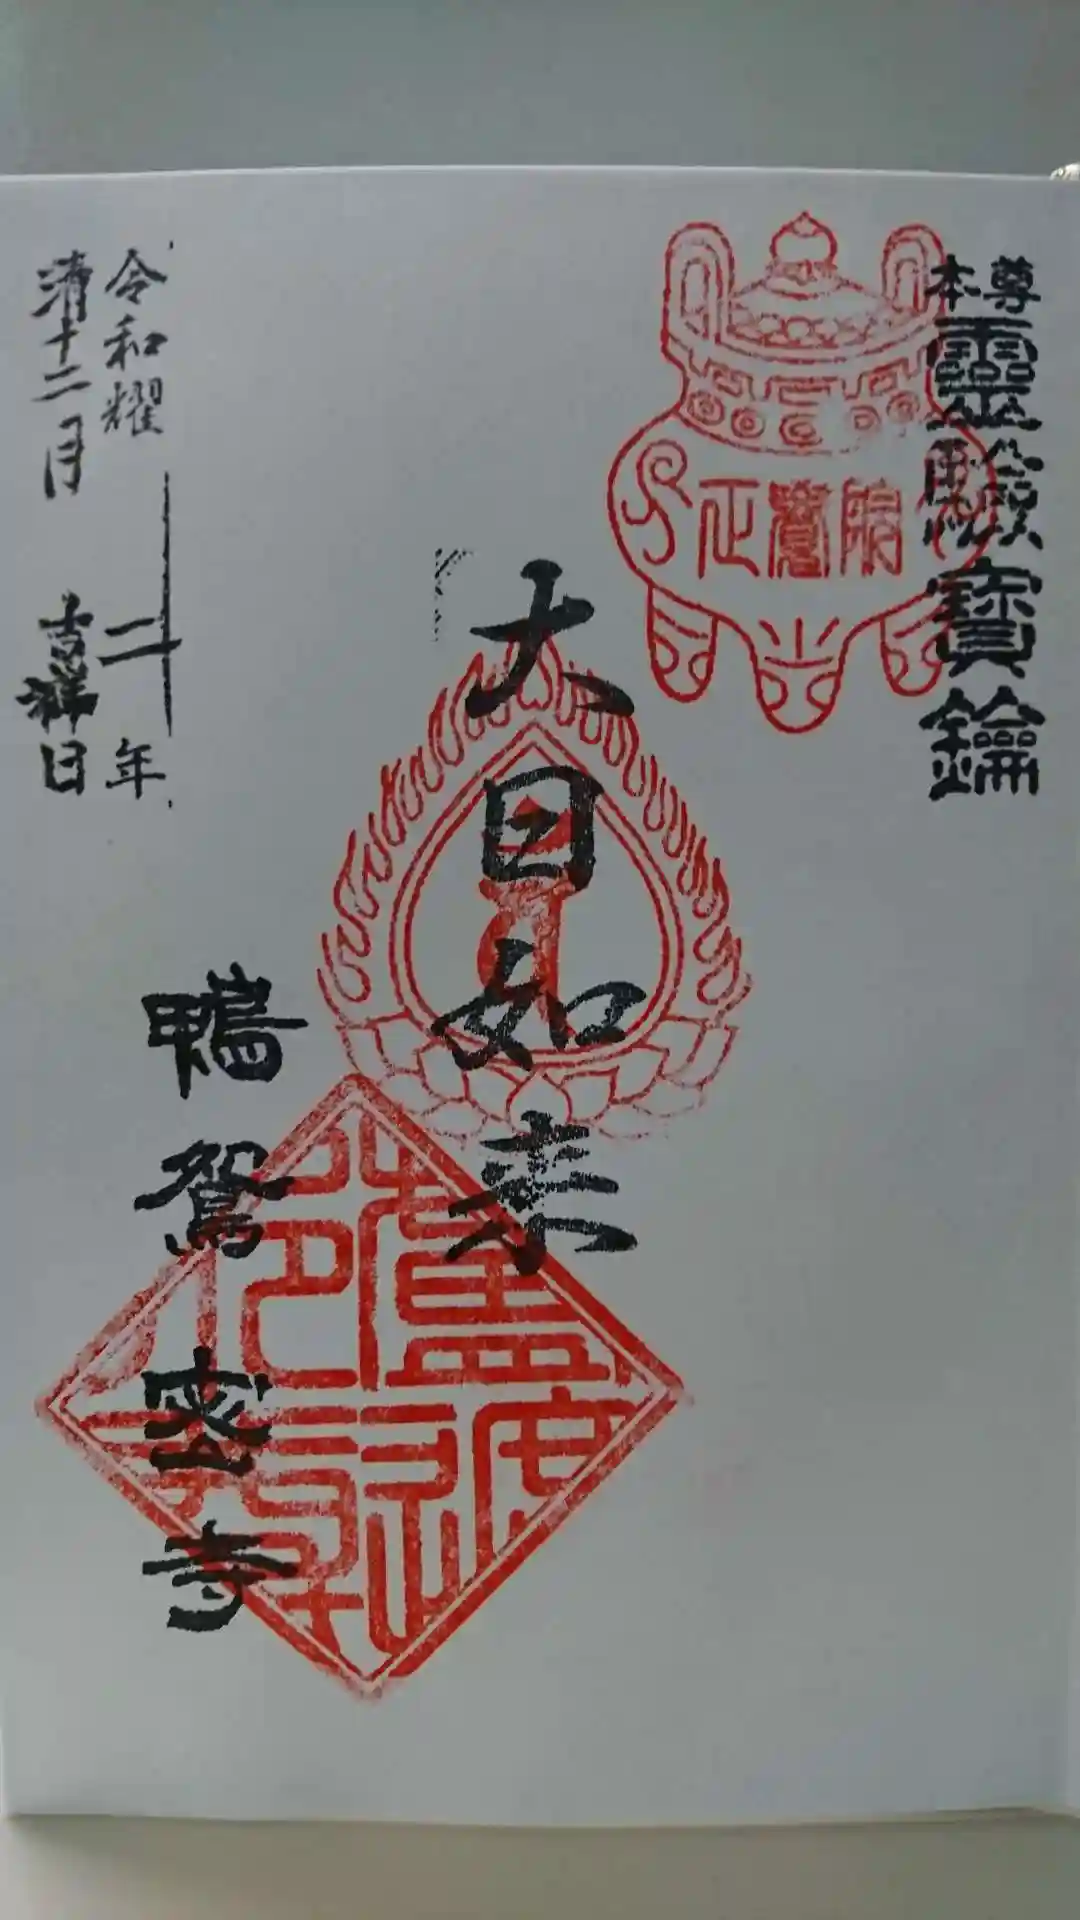 尊本
靈驗寶鑰
正寳院
大日如来
令和耀二年
清十二月吉祥日
鴨鴛密寺